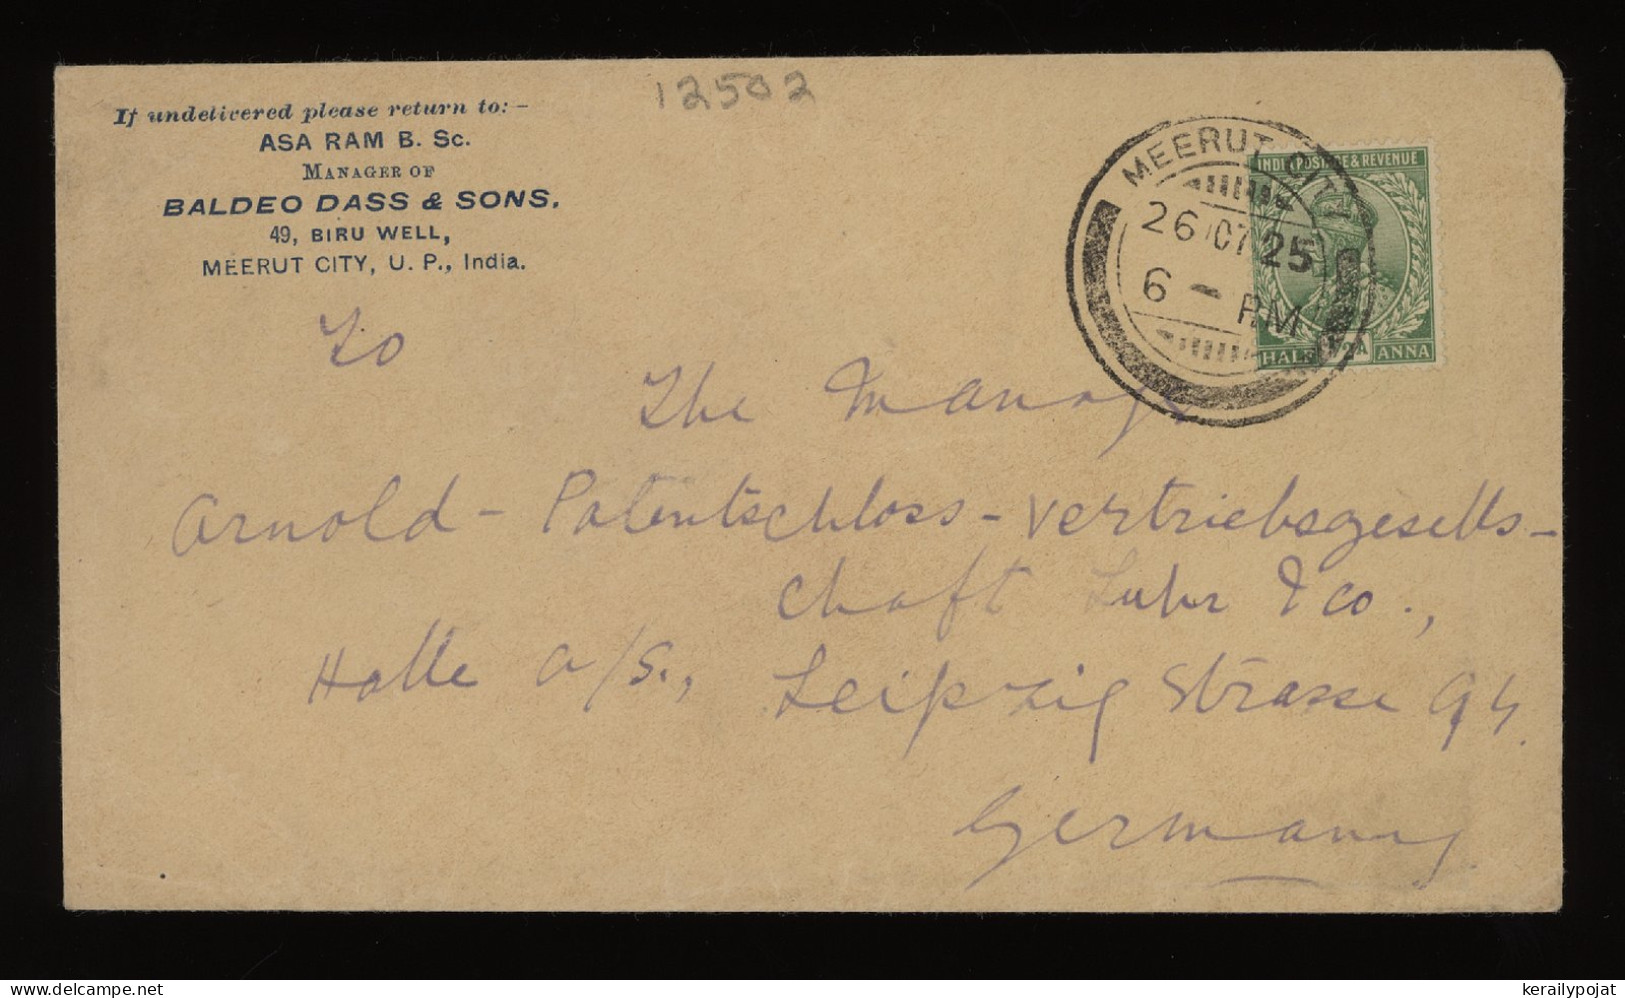 12502
If undelivered please return to:-
ASA RAM B. Sc.
MANAGER OF
BALDEO DASS & SONS,
49, BIRU WELL,
MEERUT CITY, U. P., India.
MEERUT CITY
26 OCT 25
6 - P.M
INDIA POSTAGE & REVENUE
HALF 1/2 A ANNA
To
The Manager
Arnold - Patentschloss - Vertriebsgesells -
chaft Luhr & Co.,
Halle a/S., Leipzig Strasse 94.
Germany
kerailypojat
delcampe.net